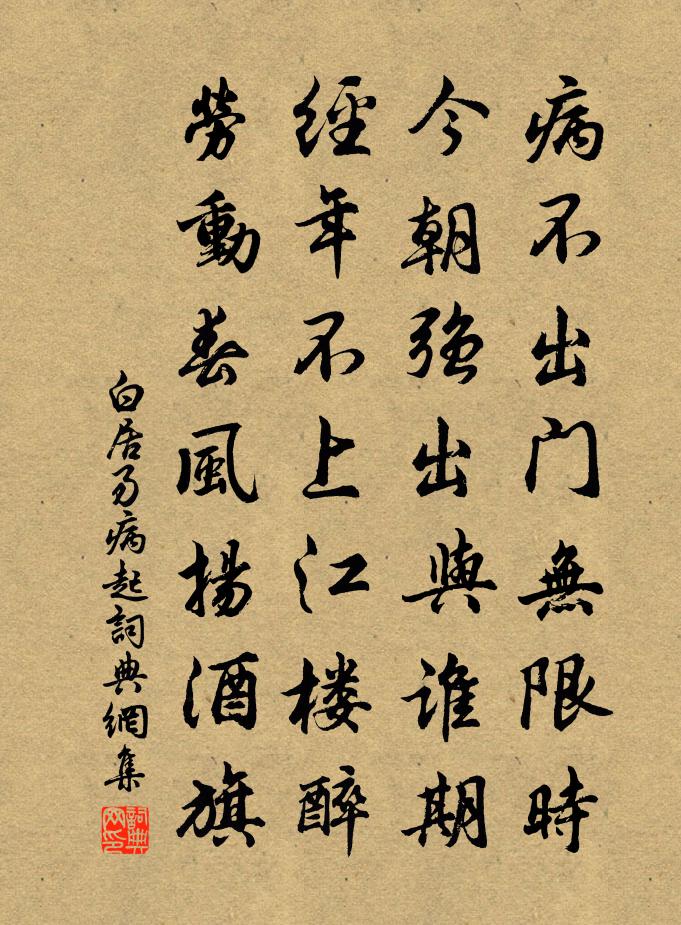 病不出门無限時
今朝强出與谁期
經年不上江楼醉
勞動春風揚酒旗
白居易病起詞典網集
詞典网印